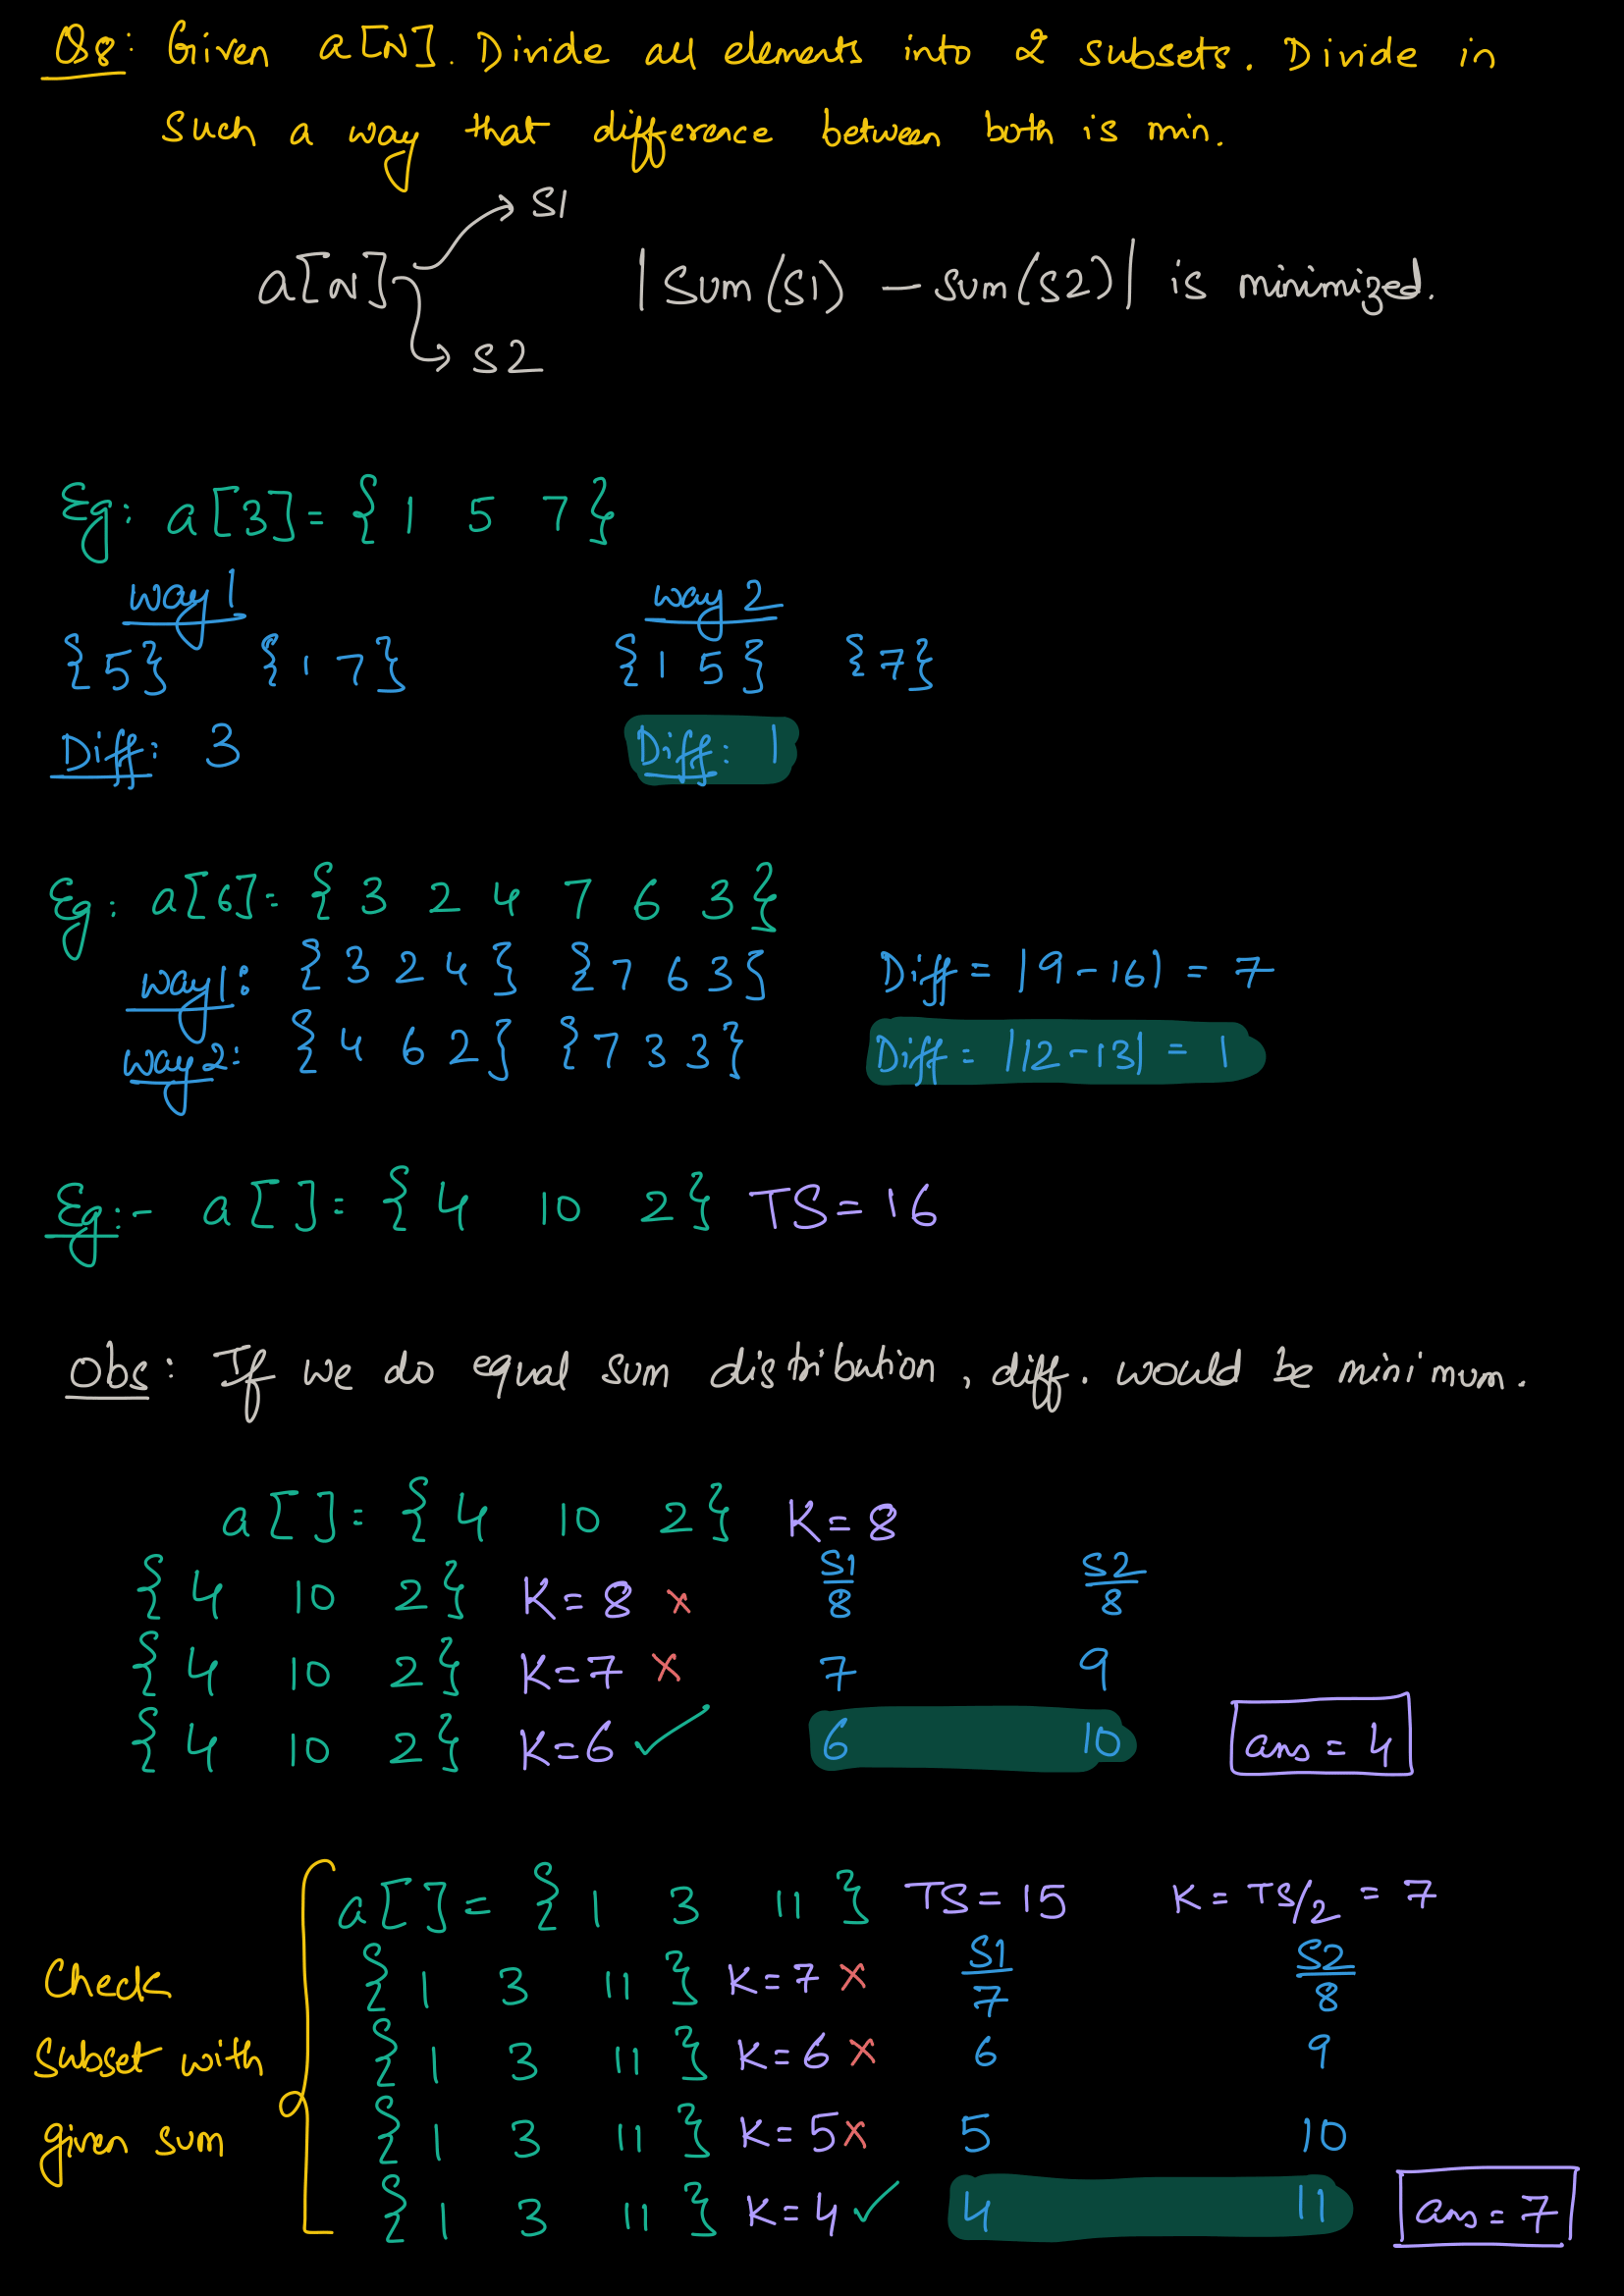 Q8: Given a[N]. Divide all elements into 2 subsets. Divide in
such a way that difference between both is min.
S1
a[N] |Sum(S1) - sum(S2)| is minimized.
S2
Eg: a[3]= {1 5 7}
way 1 way 2
{5} {1 7} {1 5} {7}
Diff: 3 Diff: 1
Eg: a[6]= {3 2 4 7 6 3}
way1: {3 2 4} {7 6 3} Diff = |9-16| = 7
way2: {4 6 2} {7 3 3} Diff = |12-13| = 1
Eg:- a[]= {4 10 2} TS=16
Obs: If we do equal sum distribution, diff. would be minimum.
a[]= {4 10 2} K=8
S1 S2
{4 10 2} K=8 × 8 8
{4 10 2} K=7 × 7 9
{4 10 2} K=6 ✓ 6 10 ans = 4
a[]= {1 3 11} TS=15 K= TS/2 = 7
S1 S2
Check {1 3 11} K=7 × 7 8
subset with {1 3 11} K=6 × 6 9
given sum {1 3 11} K=5 × 5 10
{1 3 11} K=4 ✓ 4 11 ans = 7